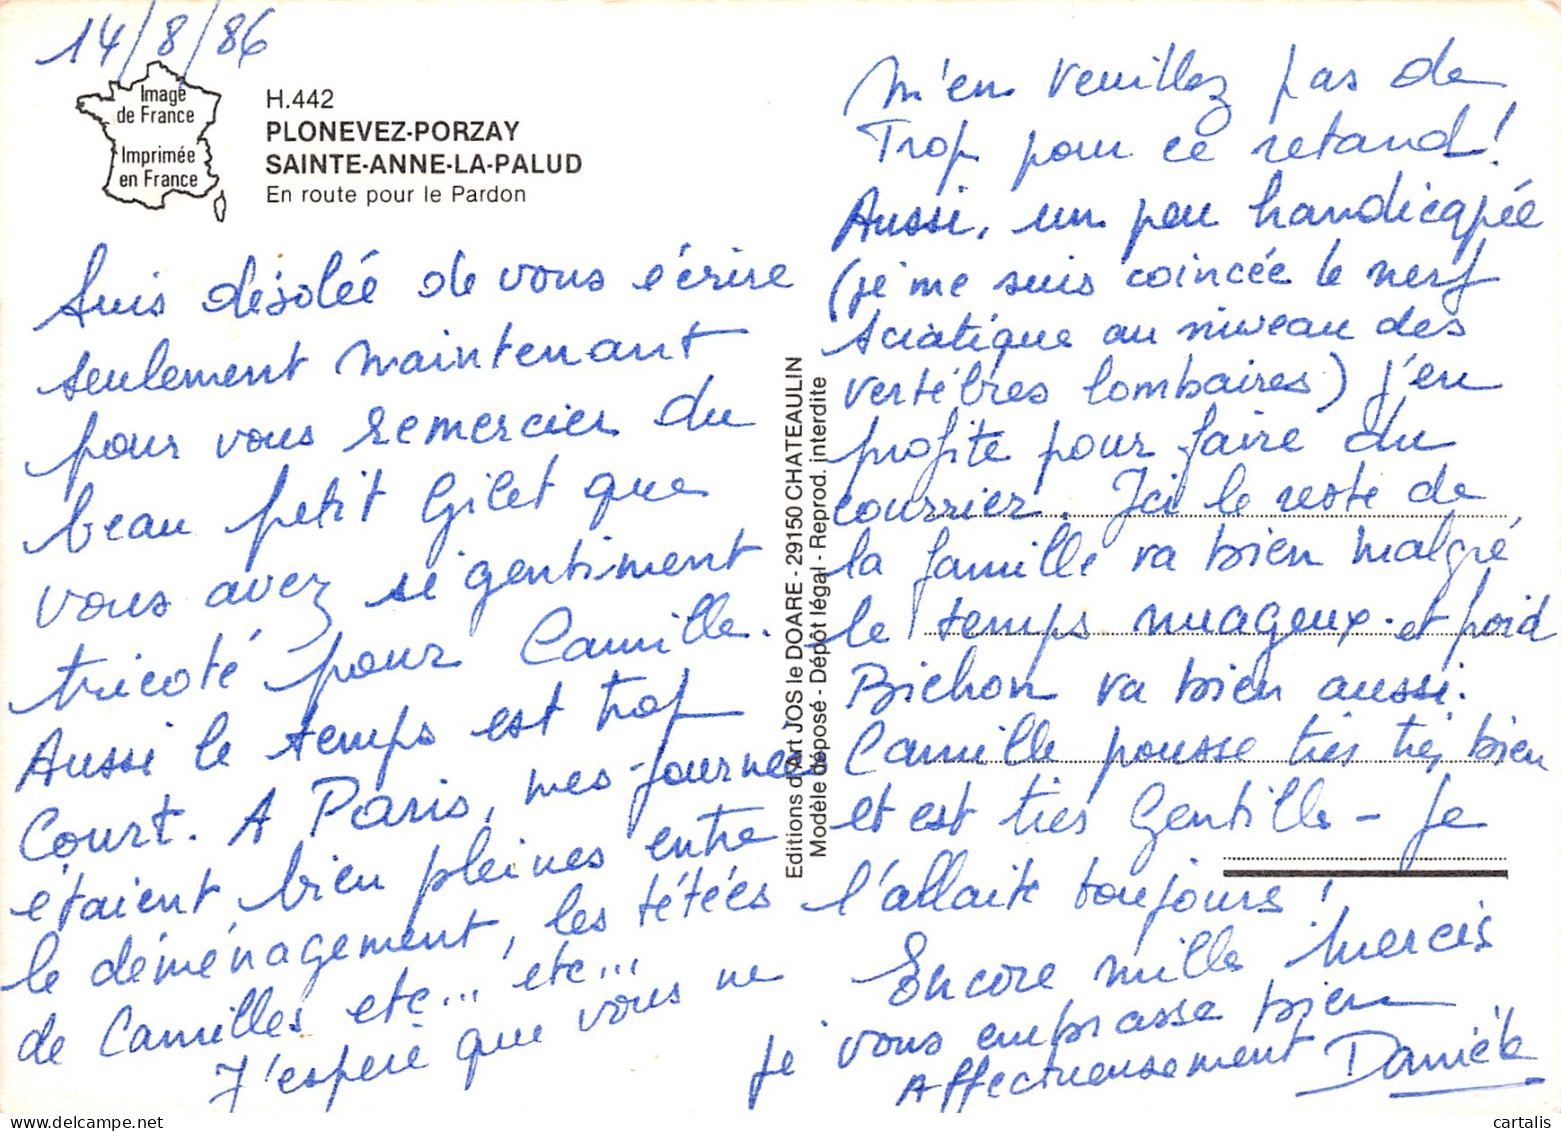 14/8/86
Image
de France
Imprimée
en France
H.442
PLONEVEZ-PORZAY
SAINTE-ANNE-LA-PALUD
En route pour le Pardon
Suis désolée de vous écrire
seulement maintenant
pour vous remercier du
beau petit Gilet que
vous avez si gentiment
tricoté pour Camille.
Aussi le temps est trop
Court. A Paris, mes journées
étaient bien pleines entre
le déménagement, les tétées
de Camilles etc... etc...
J'espère que vous ne
Editions d'Art JOS le DOARE - 29150 CHATEAULIN
Modèle déposé - Dépôt légal - Reprod. interdite
m'en veuillez pas de
Trop pour ce retard !
Aussi, un peu handicapée
(je me suis coincée le nerf
sciatique au niveau des
vertèbres lombaires) j'en
profite pour faire du
courrier. Ici le reste de
la famille va bien malgré
le temps nuageux et froid
Bichon va bien aussi.
Camille pousse très très bien
et est très Gentille - Je
l'allaite toujours !
Encore mille mercis
je vous embrasse bien
Affectueusement Danièle
cartalis